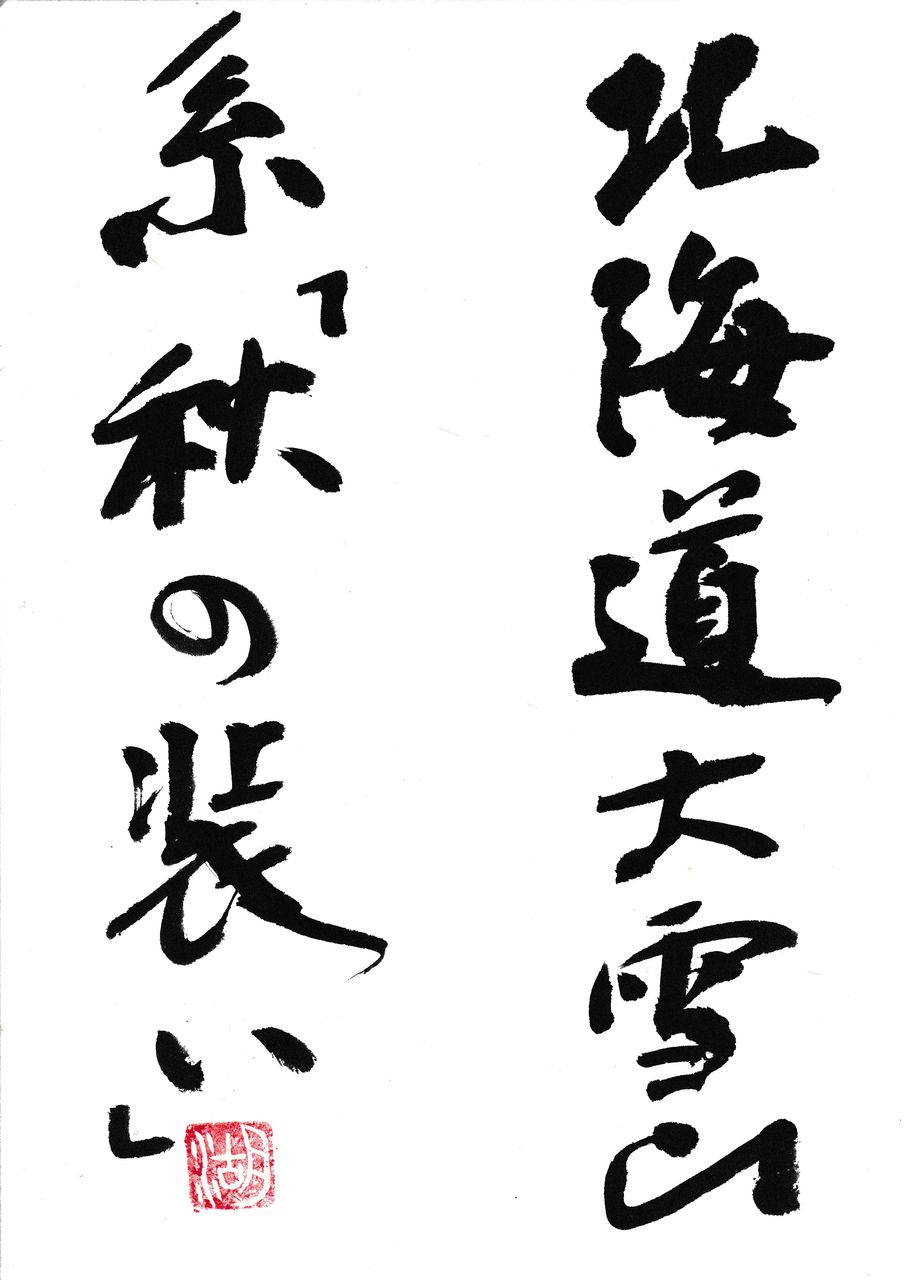 北海道大雪山
系「秋の装い」
湖